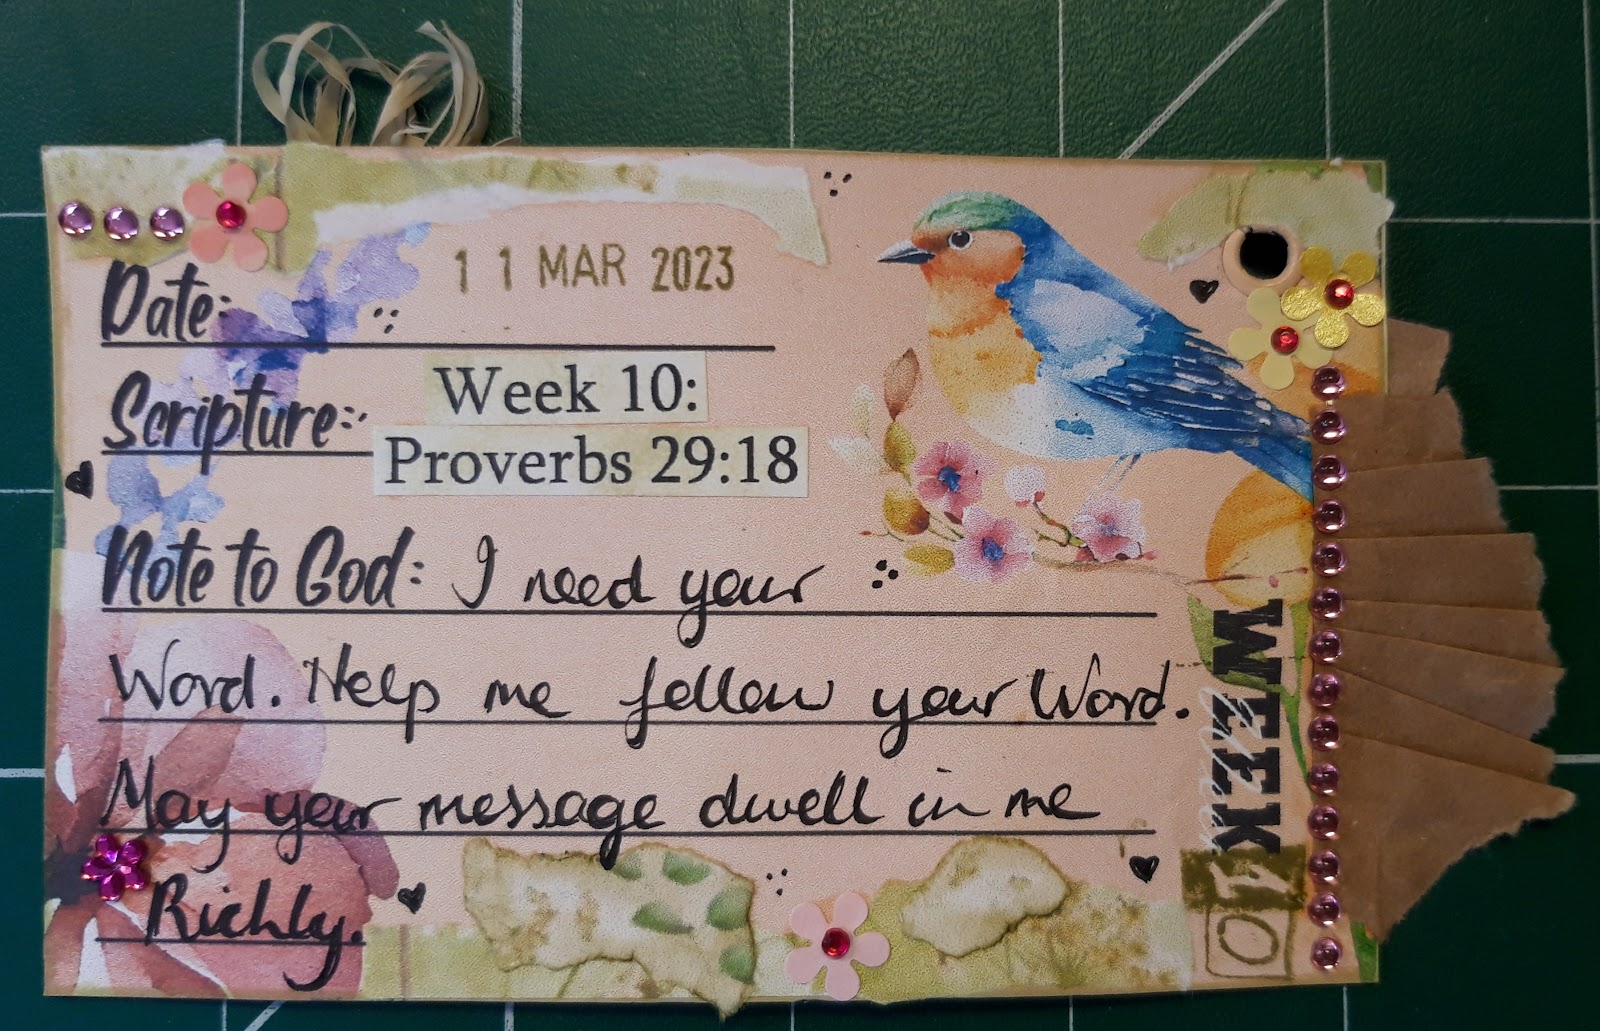 Date: 11 MAR 2023
Scripture: Week 10:
Proverbs 29:18
Note to God: I need your
Word. Help me follow your Word.
May your message dwell in me
Richly.
WEEK
10